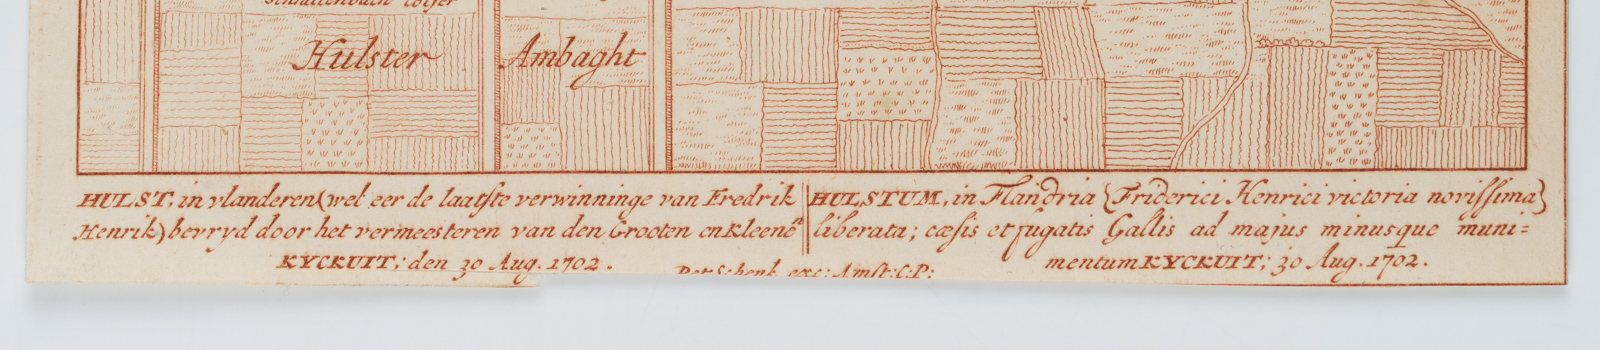 Hulster Ambaght
HULST, in vlanderen (wel eer de laatste verwinninge van Fredrik
Henrik) bevryd door het vermeesteren van den Grooten en Kleenen
KYCKUIT; den 30 Aug. 1702.
HULSTUM, in Flandria {Friderici Henrici victoria novissima}
liberata; cæsis et fugatis Gallis ad majus minusque muni=
mentum KYCKUIT; 30 Aug. 1702.
Pet: Schenk exc: Amst: C: P: